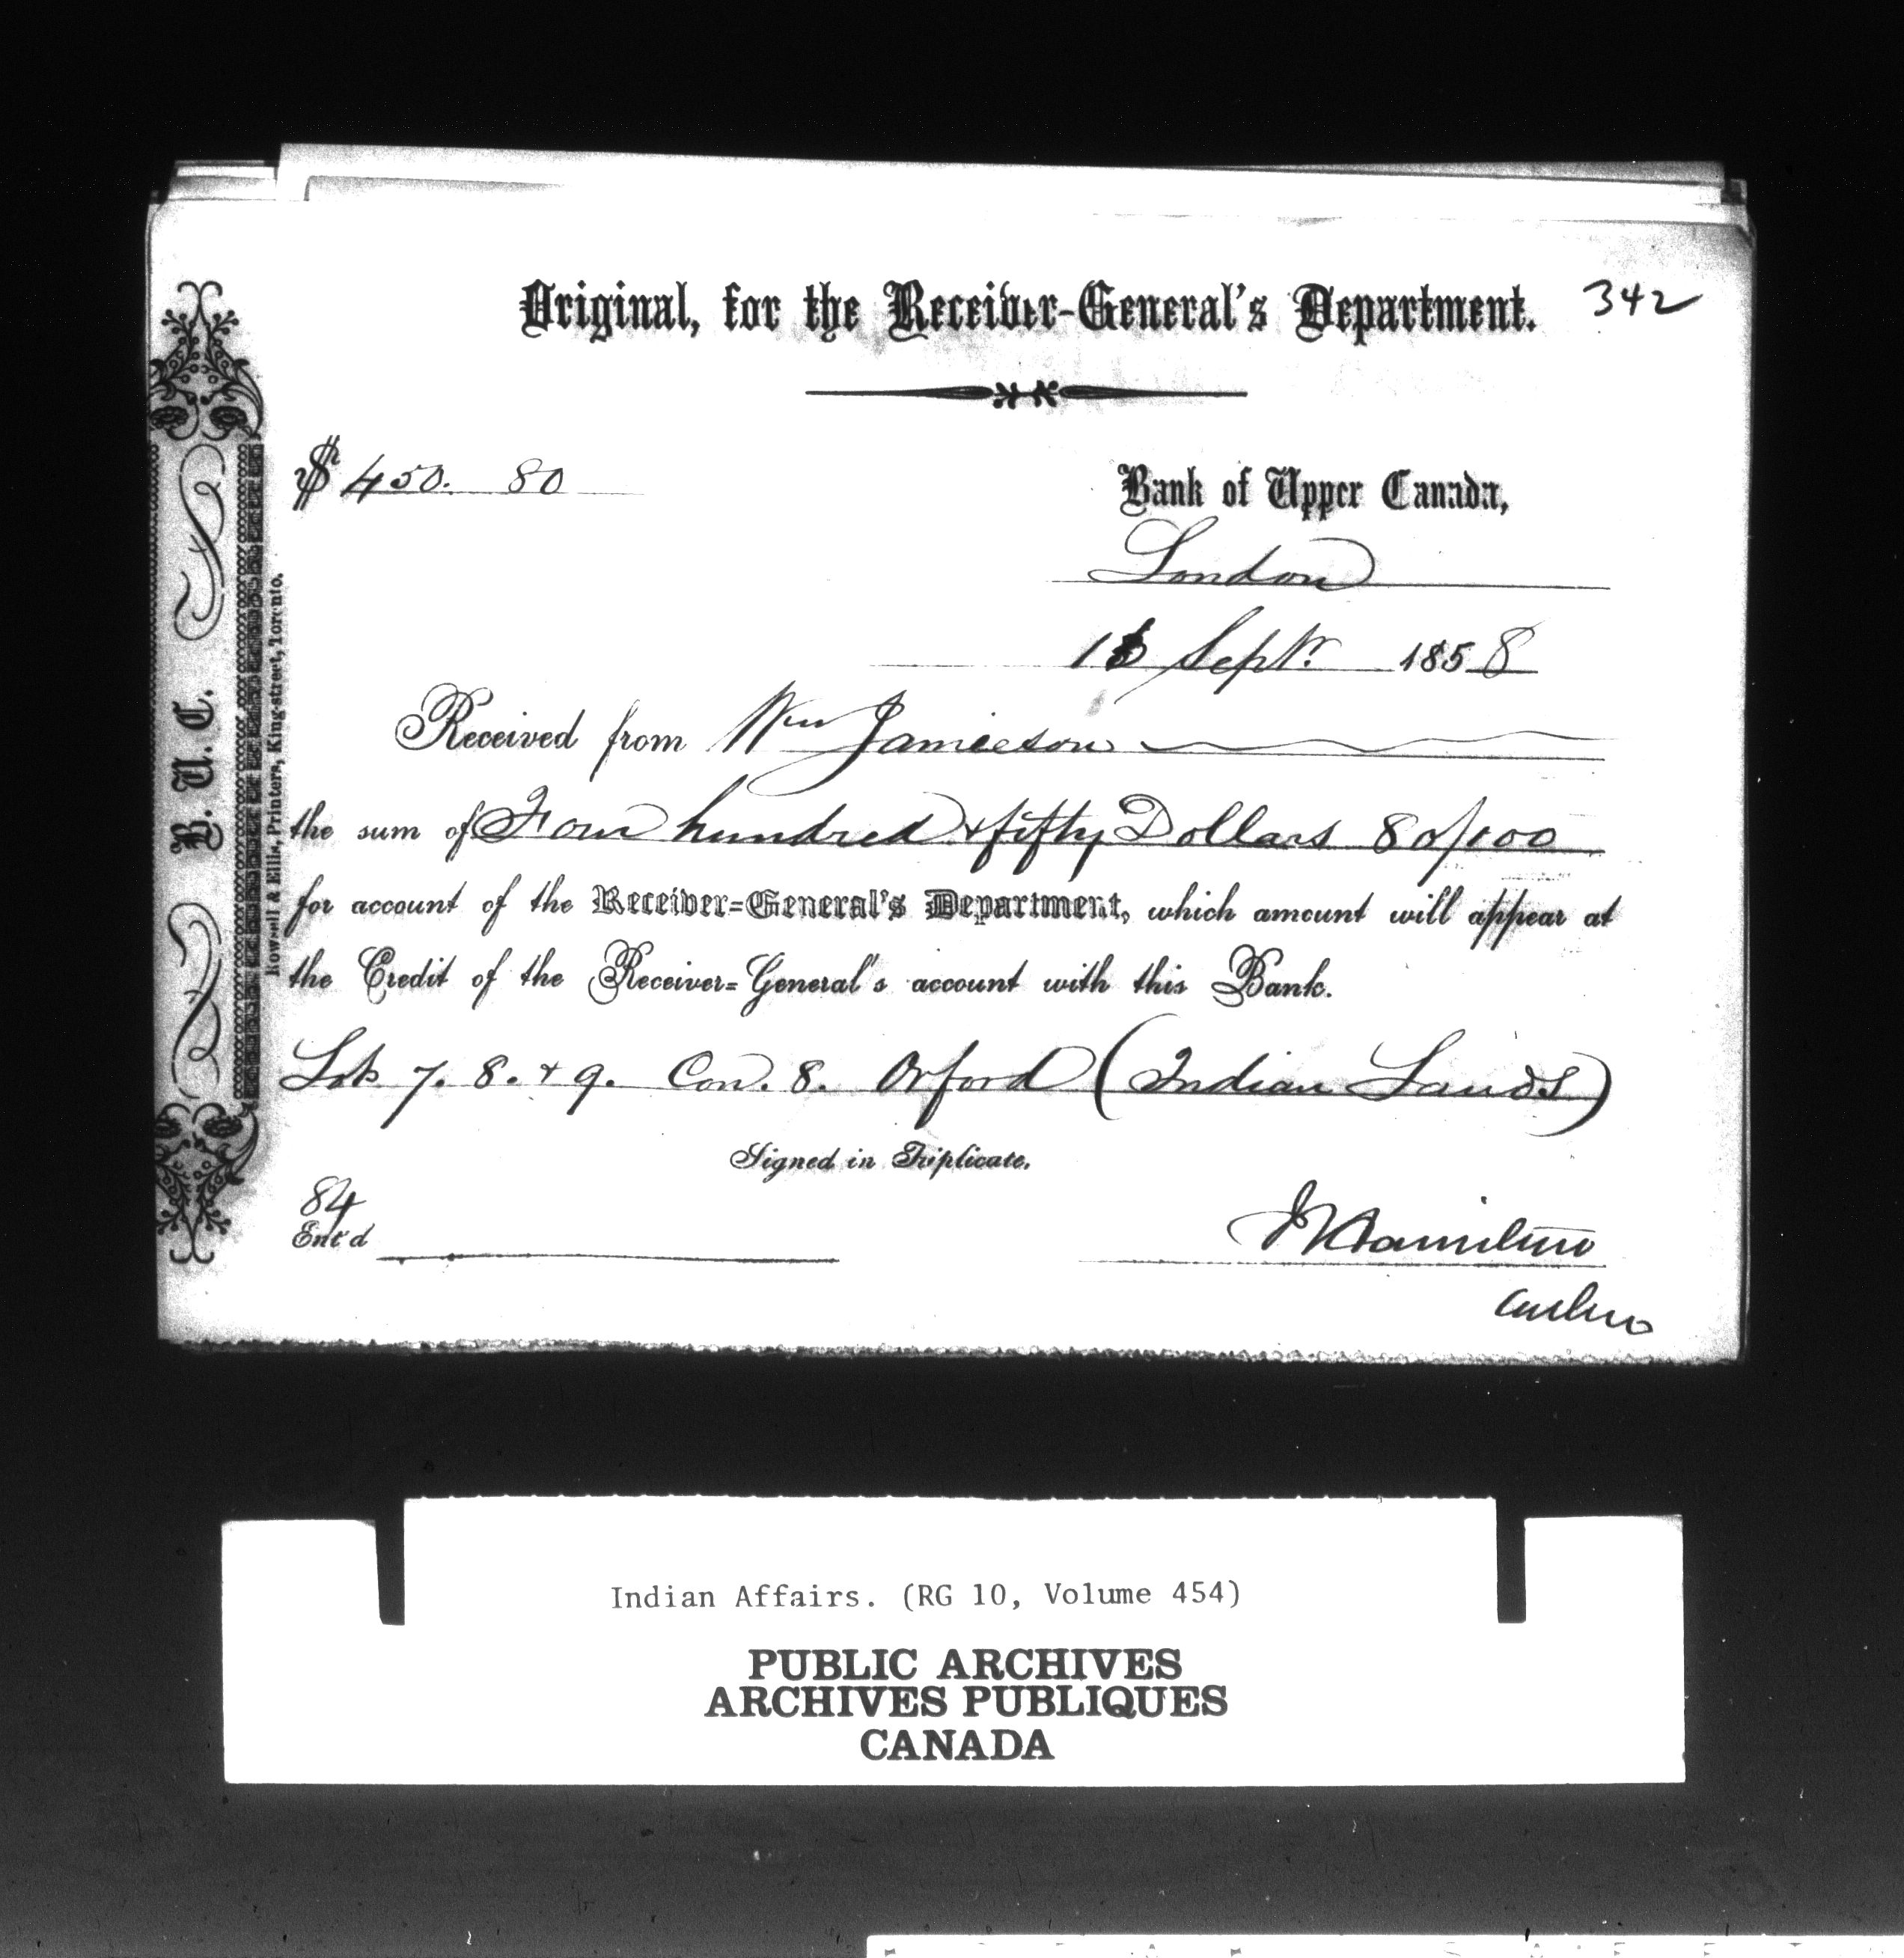 Original, for the Receiver-General's Department. 342
$ 450. 80
Bank of Upper Canada,
London
Septr. 1858
Received from Wm Jamieson
the sum of Four hundred & fifty Dollars 80/100
for account of the Receiver-General's Department, which amount will appear at
the Credit of the Receiver-General's account with this Bank.
Lots 7. 8. & 9. Con. 8. Orford (Indian Lands)
Signed in Triplicate.
84
Ent'd
J Hamilton
Cashier
B. U. C.
Rowsell & Ellis, Printers, King-street, Toronto.
Indian Affairs. (RG 10, Volume 454)
PUBLIC ARCHIVES
ARCHIVES PUBLIQUES
CANADA